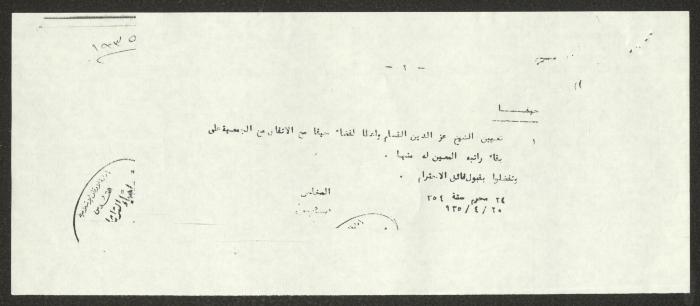 ١٩٣٥
- ٢ -
حيفا
١ تعيين الشيخ عز الدين القسام واعظا لقضاء حيفا مع الاتفاق مع الجمعية على
بقاء راتبه المعين له منها .
وتفضلوا بقبول فائق الاحترام .
المخلص
٢٤ محرم سنة ٣٥٤
٢٠ / ٤ / ٩٣٥